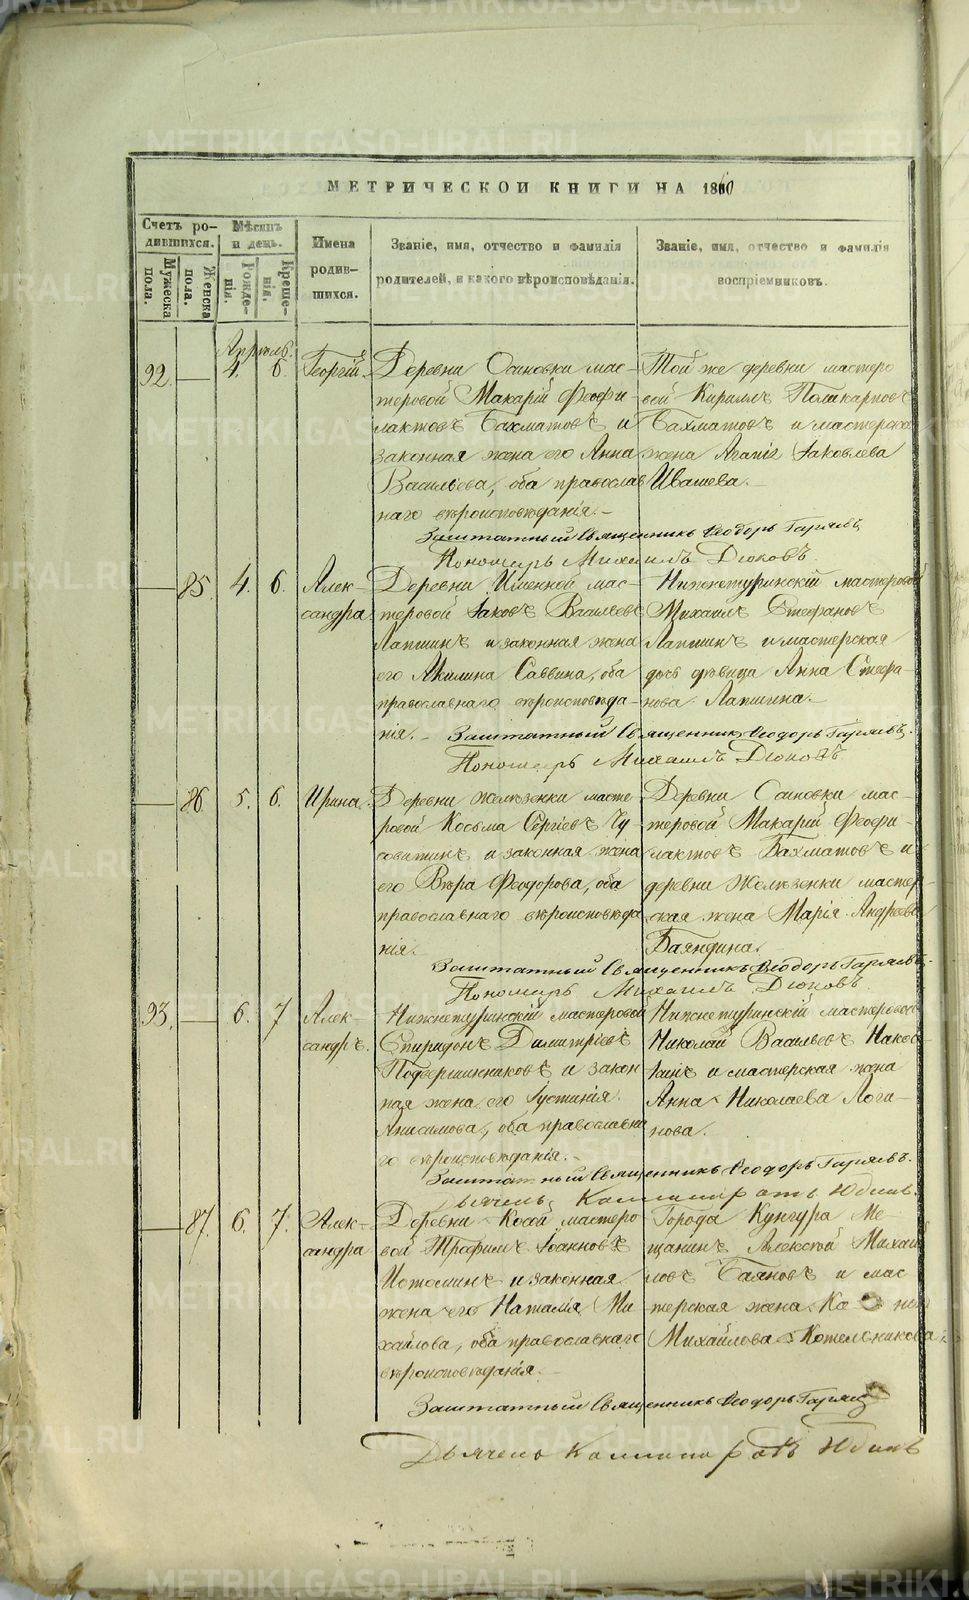 МЕТРИЧЕСКОЙ КНИГИ НА 1860
Счетъ ро-
дившихся.
Мужеска
пола.
Женска
пола.
Мѣсяцъ
и день.
Рожде-
нія.
Креще-
нія.
Имена
родив-
шихся.
Званіе, имя, отчество и фамилія
родителей, и какого вѣроисповѣданія.
Званіе, имя, отчество и фамилія
воспріемниковъ.
Апрѣль.
92. — 4. 6. Георгій.
Деревни Осиновки мас-
теровой Макарій Феофи-
лактовъ Бахматовъ и
законная жена его Анна
Васильева, оба православ
наго вѣроисповѣданія.
Той же деревни мастеро
вой Кириллъ Поликарповъ
Бахматовъ и мастерская
жена Агапія Іаковлева
Ивашева.
Заштатный Священникъ Ѳеодоръ Гаряевъ
Пономарь Михаилъ Дюковъ.
— 85. 4. 6. Алек-
сандра.
Деревни Именной мас-
теровой Іаковъ Васильевъ
Лапшинъ и законная жена
его Акилина Саввина, оба
православнаго вѣроисповѣда-
нія.
Нижнетуринскій мастеровой
Михаилъ Стефановъ
Лапшинъ и мастерская
дочь дѣвица Анна Стефа-
нова Лапшина.
Заштатный Священникъ Ѳеодоръ Гаряевъ.
Пономарь Михаилъ Дюковъ
— 86 5. 6. Ирина.
Деревни Желѣзенки масте
ровой Косьма Сергіевъ
и законная жена
его Вѣра Феодорова, оба
православнаго вѣроисповѣда
нія.
Деревни Осиновки мас-
теровой Макарій Феофи-
лактовъ Бахматовъ и
деревни Желѣзенки мастер-
ская жена Марія Андреева
Баяндина.
Заштатный Священникъ Ѳеодоръ Гаряевъ.
Пономарь Михаилъ Дюковъ.
93. — 6. 7 Алек-
сандръ.
Нижнетуринскій мастеровой
Спиридонъ Димитріевъ
и закон
ная жена его Іустинія
Анисимова, оба православна
го вѣроисповѣданія.
Нижнетуринскій мастеровой
Николай Васильевъ
и мастерская жена
Анна Николаева Логи-
нова.
Заштатный Священникъ Ѳеодоръ Гаряевъ.
Дьячекъ Юдинъ.
— 87. 6. 7. Алек-
сандра
Деревни Косой мастеро
вой Трафимъ Іоанновъ
Истоминъ и законная
жена его Наталія Ми
хайлова, оба православнаго
вѣроисповѣданія.
Города Кунгура Ме-
щанинъ Алексѣй Михай
ловъ Баяновъ и мас
терская жена
Михайлова Котельникова.
Заштатный Священникъ Ѳеодоръ Гаряевъ
Дьячекъ Юдинъ
METRIKI.GASO-URAL.RU